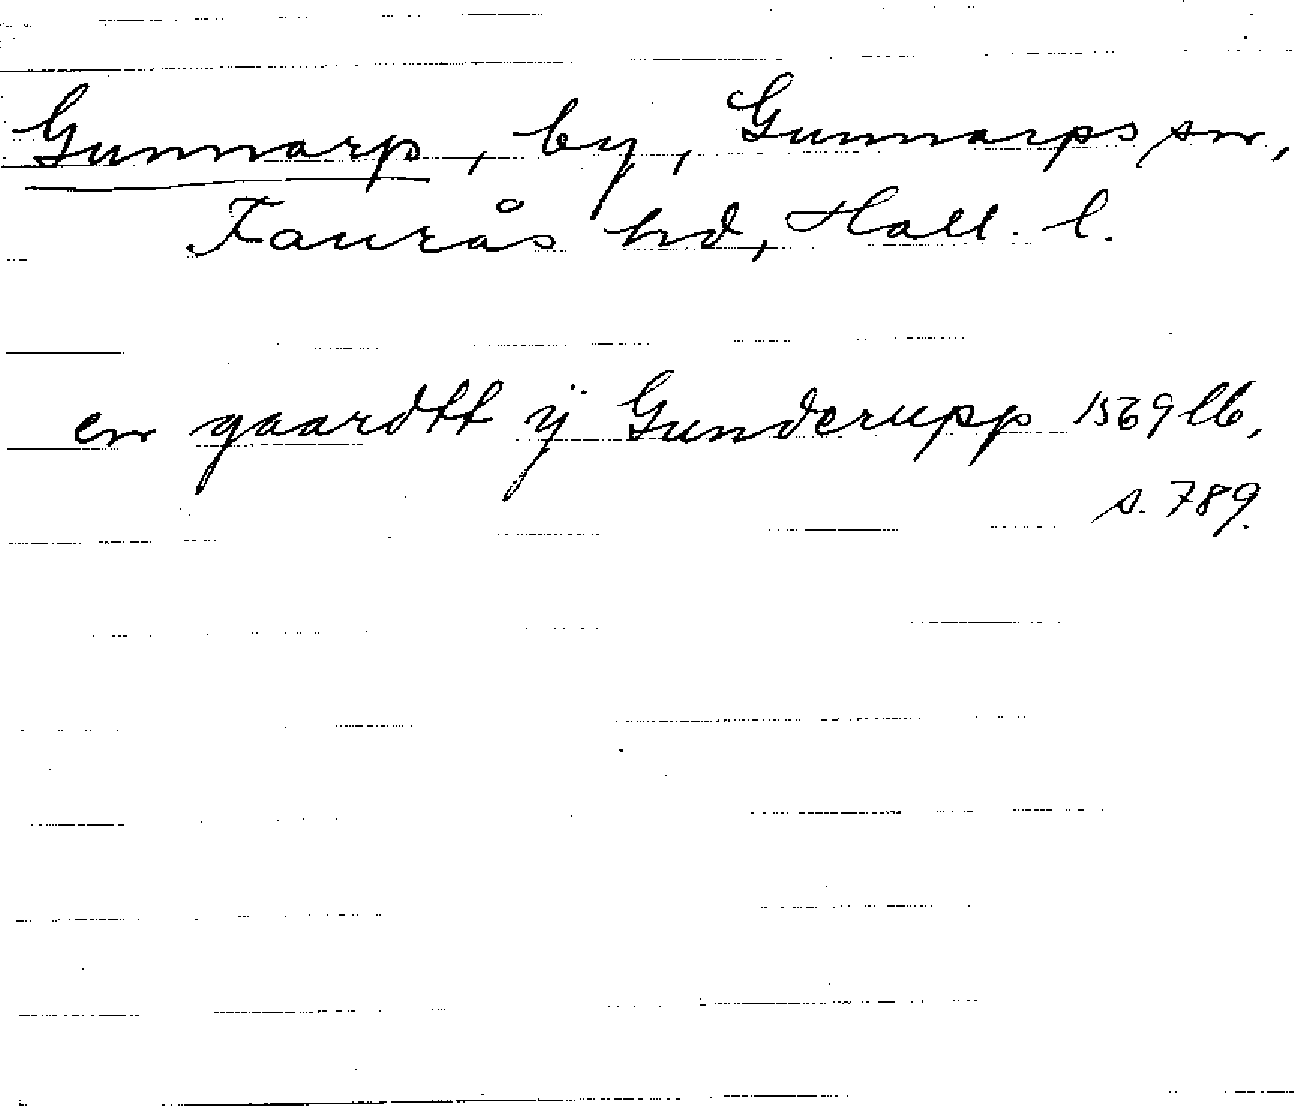 Gunnarp, by, Gunnarps sn,
Faurås hd, Hall. l.
en gaardtt ÿ Gunderupp 1569 lb,
s. 789.